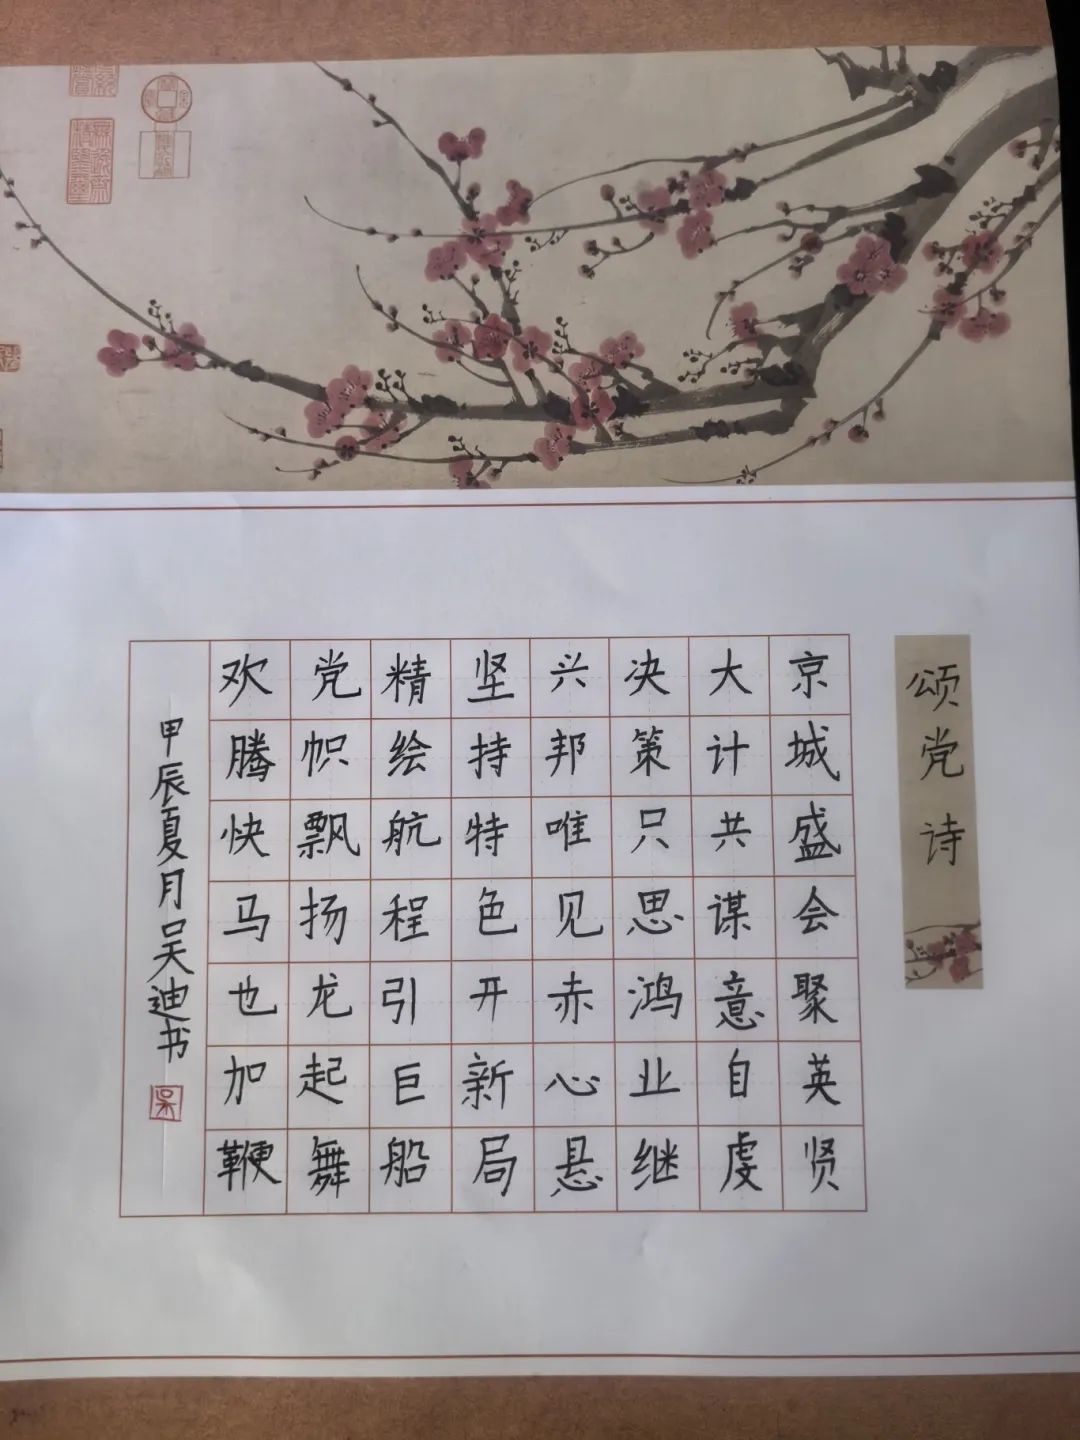 颂党诗
京城盛会聚英贤
大计共谋意自虔
决策只思鸿业继
兴邦唯见赤心悬
坚持特色开新局
精绘航程引巨船
党帜飘扬龙起舞
欢腾快马也加鞭
甲辰夏月吴迪书
吴